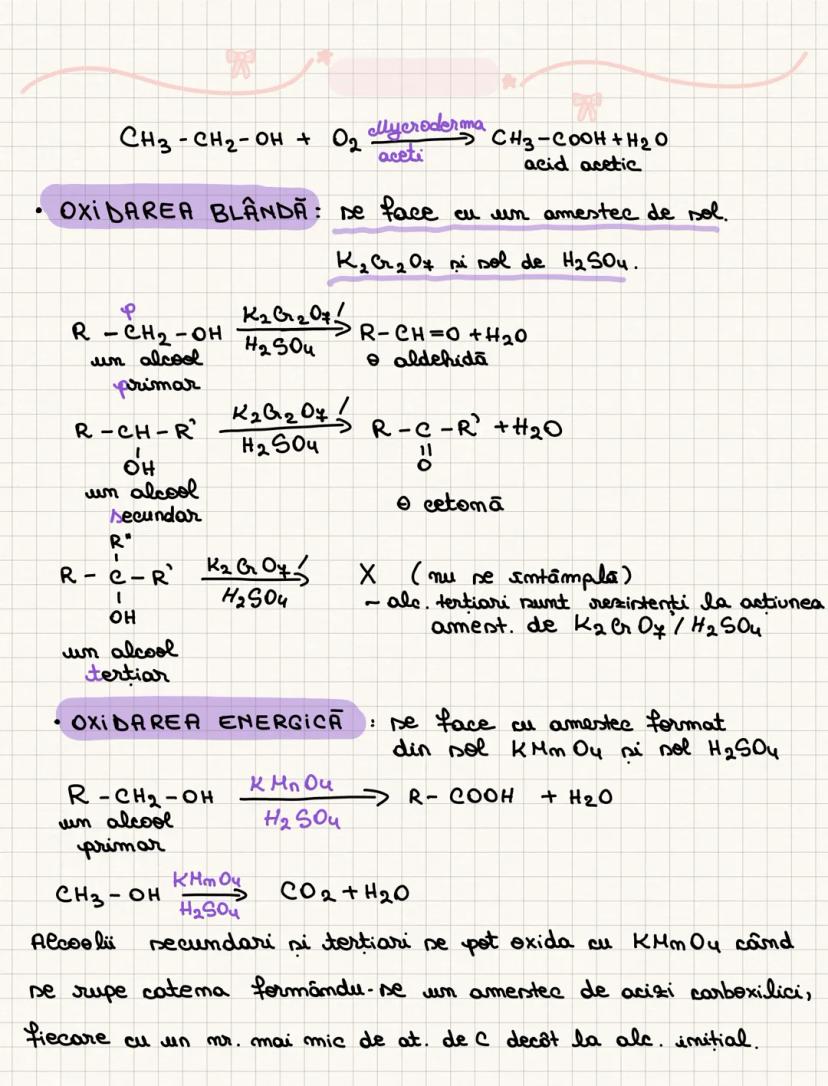 CH3 - CH2 - OH + O2 Mycroderma aceti → CH3 - COOH + H2O
acid acetic
• OXIDAREA BLÂNDĂ: se face cu un amestec de sol.
K2Cr2O7 și sol de H2SO4.
p
R - CH2 - OH K2Cr2O7 / H2SO4 → R - CH = O + H2O
un alcool o aldehidă
primar
R - CH - R' K2Cr2O7 / H2SO4 → R - C - R' + H2O
OH O
un alcool o cetonă
secundar
R"
R - C - R' K2CrO7 / H2SO4 → X (nu se întâmplă)
OH - alc. terțiari sunt rezistenți la acțiunea
amest. de K2CrO7 / H2SO4
un alcool
terțiar
• OXIDAREA ENERGICĂ : se face cu amestec format
din sol KMnO4 și sol H2SO4
R - CH2 - OH KMnO4 H2SO4 → R - COOH + H2O
un alcool
primar
CH3 - OH KMnO4 H2SO4 → CO2 + H2O
Alcoolii secundari și terțiari se pot oxida cu KMnO4 când
se rupe catena formându-se un amestec de acizi carboxilici,
fiecare cu un nr. mai mic de at. de C decât la alc. inițial.